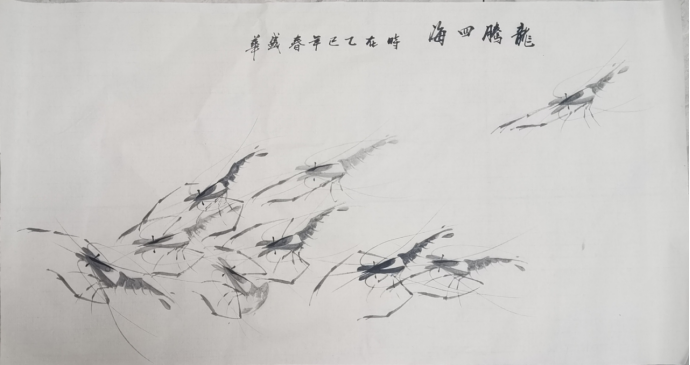 龍騰四海 時在乙巳年春 華